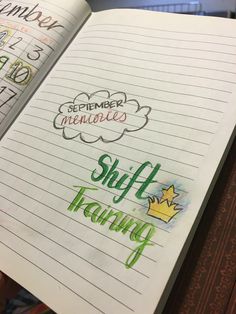 ember
2 3
9 10
17
SEPTEMBER
memories
Shift
Training